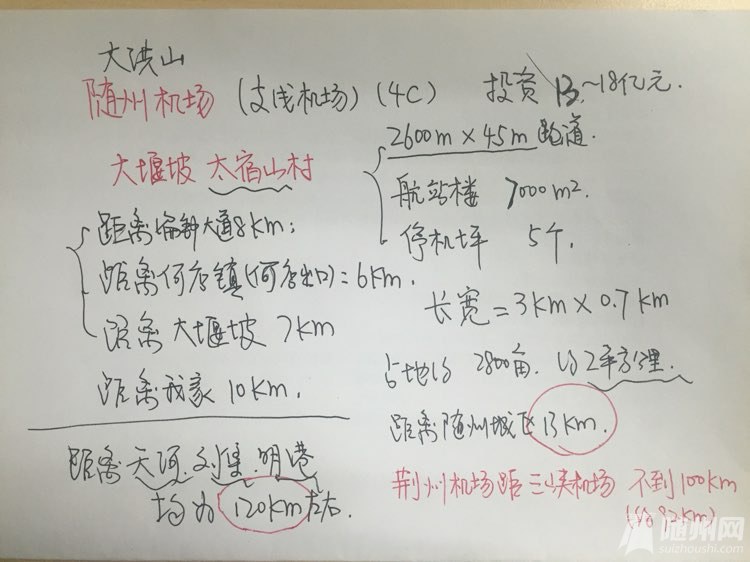 大洪山
随州机场 (支线机场) (4C) 投资 13.~18亿元.
2600m × 45m 跑道.
大堰坡 太宿山村
航站楼 7000m².
停机坪 5个.
距离编钟大道8km;
距离何店镇(何店出口)=6km.
长宽=3km×0.7km
距离大堰坡 7km
占地约 2800亩. 约2平方公理.
距离我家 10km.
距离随州城区13km.
距离天河.刘集.明港
均为120km左右.
荆州机场距三峡机场 不到100km
(约92km)
随州网
suizhoushi.com